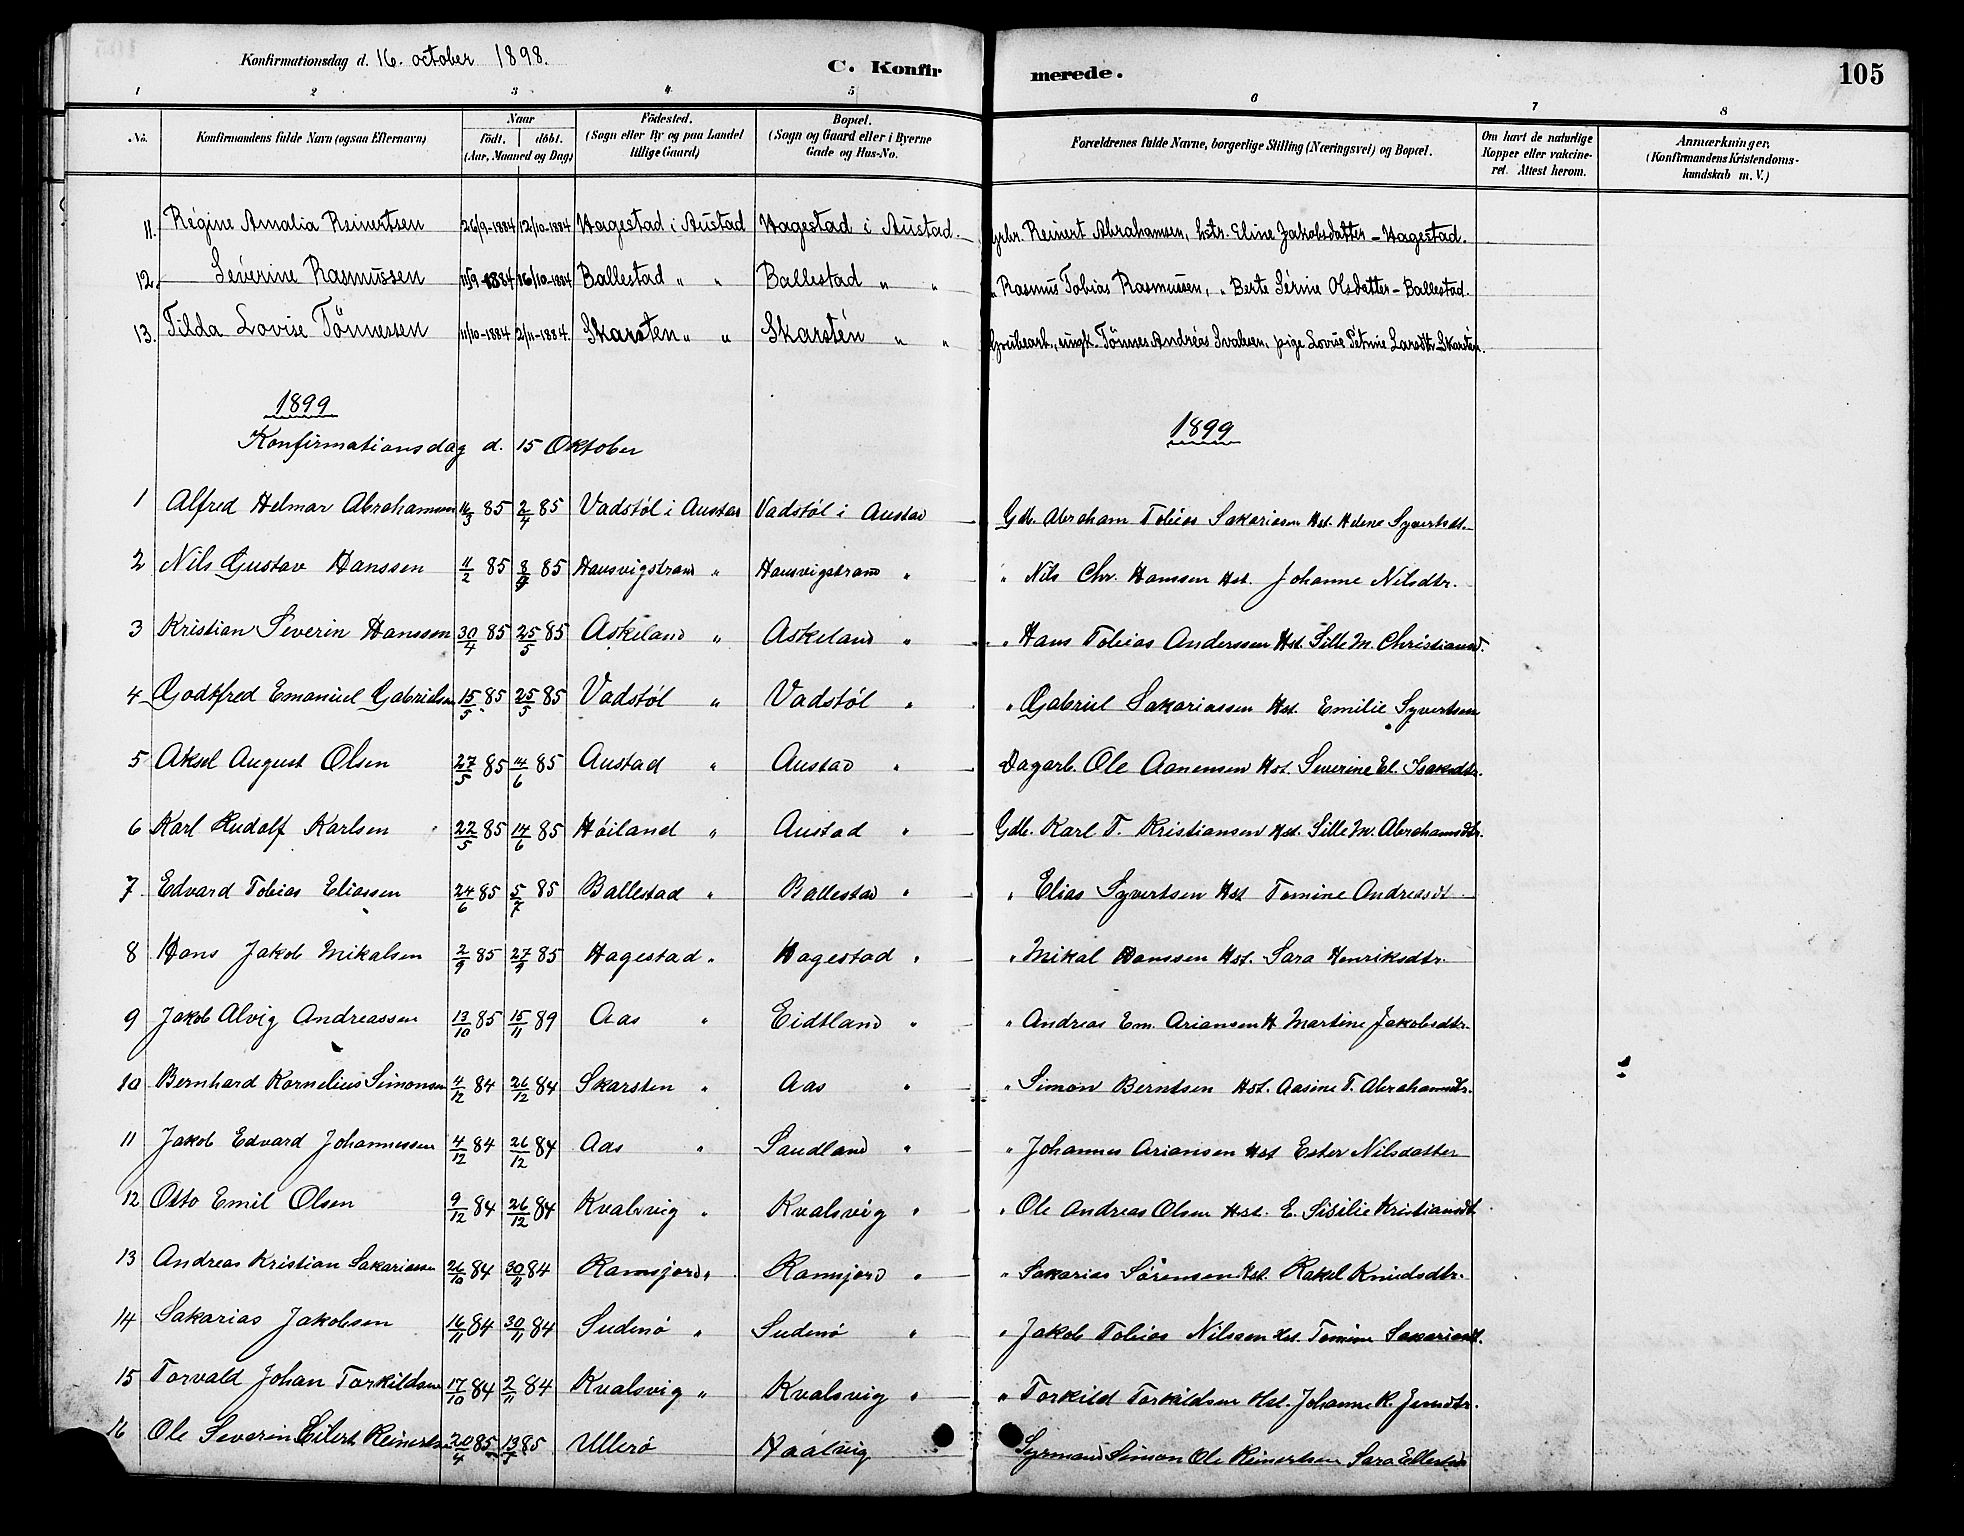 Konfirmationsdag d. 16. october 1898.
C. Konfirmerede.
105
1 2 3 4 5 6 7 8
No. Konfirmandens fulde Navn (ogsaa Efternavn) Naar Födt. döbt. (Aar, Maaned og Dag) Födested. (Sogn eller By og paa Landet tillige Gaard) Bopæl. (Sogn og Gaard eller i Byerne Gade og Hus-No. Forældrenes fulde Navne, borgerlige Stilling (Næringsvei) og Bopæl. Om havt de naturlige Kopper eller vakcineret. Attest herom. Anmærkninger, (Konfirmandens Kristendomskundskab m. V.)
11. Régine Amalia Reinertsen 26/9-1884 12/10-1884 Hagestad i Austad Hagestad i Austad. Grbr. Reinert Abrahamsen, hstr. Eline Jakobsdatter - Hagestad.
12. Séverine Rasmussen 11/9-1884 16/10-1884 Ballestad " " Ballestad " " " Rasmus Tobias Rasmussen, " Berte Sérine Olsdatter - Ballestad.
13. Tilda Lovise Tönnessen 11/10-1884 2/11-1884. Skarsten " " Skarstén " " Grubearb., ungk. Tönnes Andréas Svalesen, pige Lovise Petrine Larsdtr. Skarstén.
1899 1899
Konfirmationsdag d. 15 Oktober
1 Alfred Helmar Abrahamsen 16/3 85 2/4 85 Vadstøl i Austad Vadstøl i Austad Gdb. Abraham Tobias Sakariasen Hst. Helene Syvertsdt.
2 Nils Gustav Hanssen 11/2 85 8/4 85 Hausvigstrand " Hausvigstrand " " Nils Chr. Hanssen Hst. Johanne Nilsdtr.
3 Kristian Severin Hanssen 30/4 85 25/5 85 Askeland " Askeland " " Hans Tobias Anderssen Hst. Sille M. Christiansd.
4 Godtfred Emanuel Gabrielsen 15/5 85 25/5 85 Vadstøl " Vadstøl " " Gabriel Sakariassen Hst. Emilie Syvertsen
5 Aksel August Olsen 27/5 85 14/6 85 Austad " Austad " Dagarb. Ole Aanensen Hst. Severine El. Isaksdtr.
6 Karl Rudolf Karlsen 22/5 85 14/6 85 Høiland " Austad " Gdb. Karl T. Kristiansen Hst. Sille M. Abrahamsdtr.
7. Edvard Tobias Eliassen 24/6 85 5/7 85 Ballestad " Ballestad " " Elias Syvertsen Hst Tomine Andreasdt.
8 Hans Jakob Mikalsen 2/9 85 27/9 85 Hagestad " Hagestad " " Mikal Hanssen Hst. Sara Henriksdtr.
9 Jakob Alvig Andreassen 13/10 85 15/11 89 Aas " Eidtland " " Andreas Em. Ariansen H Martine Jakobsdtr.
10 Bernhard Kornelius Simonsen 4/12 84 26/12 84 Skarsten " Aas " " Simon Berntsen Hst. Aasine T. Abrahamsdtr.
11 Jakob Edvard Johannessen 4/12 84 26/12 84 Aas " Saudland " " Johannes Ariansen Hst Ester Nilsdatter
12 Otto Emil Olsen 9/12 84 26/12 84 Kvalsvig " Kvalsvig " " Ole Andreas Olsen Hst. E. Sisilie Kristiansdt.
13 Andreas Kristian Sakariassen 26/10 84 30/11 84 Ramsjord " Ramsjord " " Sakarias Sørensen Hst. Rakel Knudsdtr.
14 Sakarias Jakobsen 16/11 84 30/11 84 Sudenø " Sudenø " " Jakob Tobias Nilssen Hst. Tomine Sakariasdt.
15 Torvald Johan Torkildsen 17/10 84 2/11 84 Kvalsvig " Kvalsvig " " Torkild Torkildsen Hst. Johanne K. Jensdtr.
16 Ole Severin Eilert Reinertsen 20/4 85 13/5 85 Ullerø Haalvig Syrmand Simon Ole Reinertsen Sara